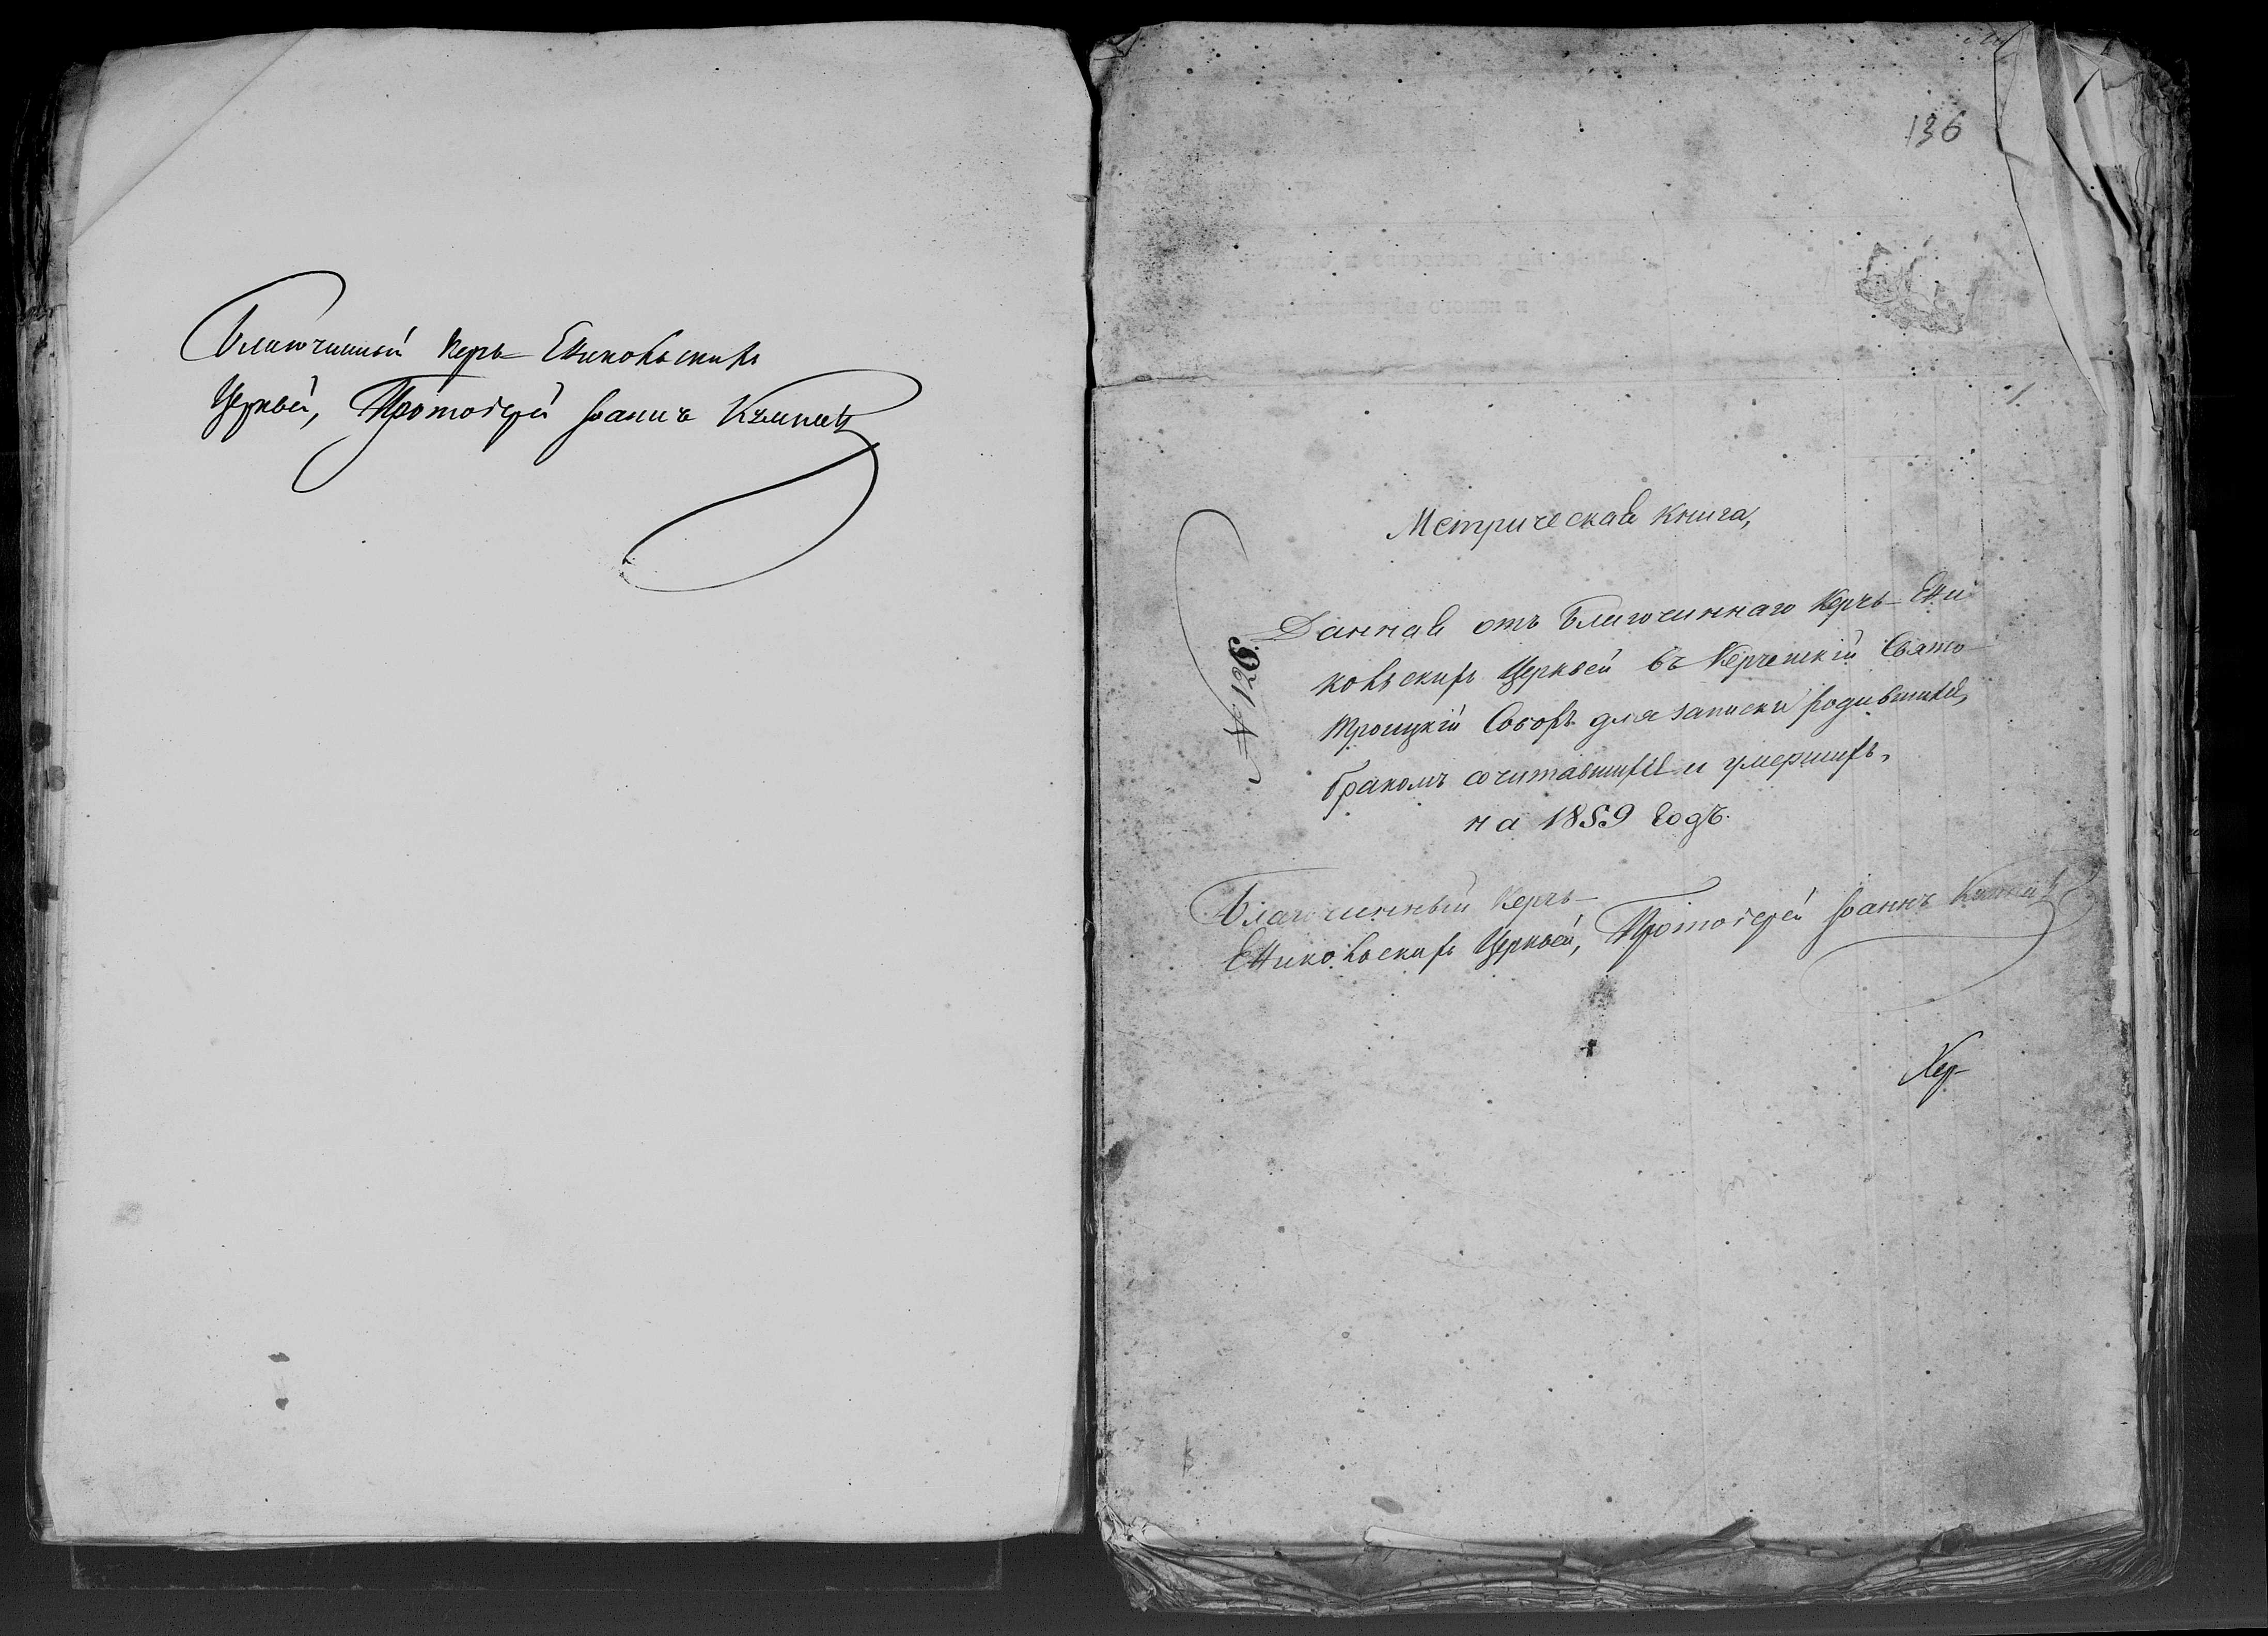 Благочинный Керчь-Ениковскихъ
Церквей, Протоіерей Іоаннъ
136
Метрическая книга,
Данная отъ Благочиннаго Керчь-Ени-
ковскихъ Церквей въ Керченскій Свято-
Троицкій Соборъ для записки родившихся,
бракомъ сочитавшихся и умершихъ,
на 1859 годъ.
Благочинный Керчь-
Ениковскихъ Церквей, Протоіерей Іоаннъ
Кер-